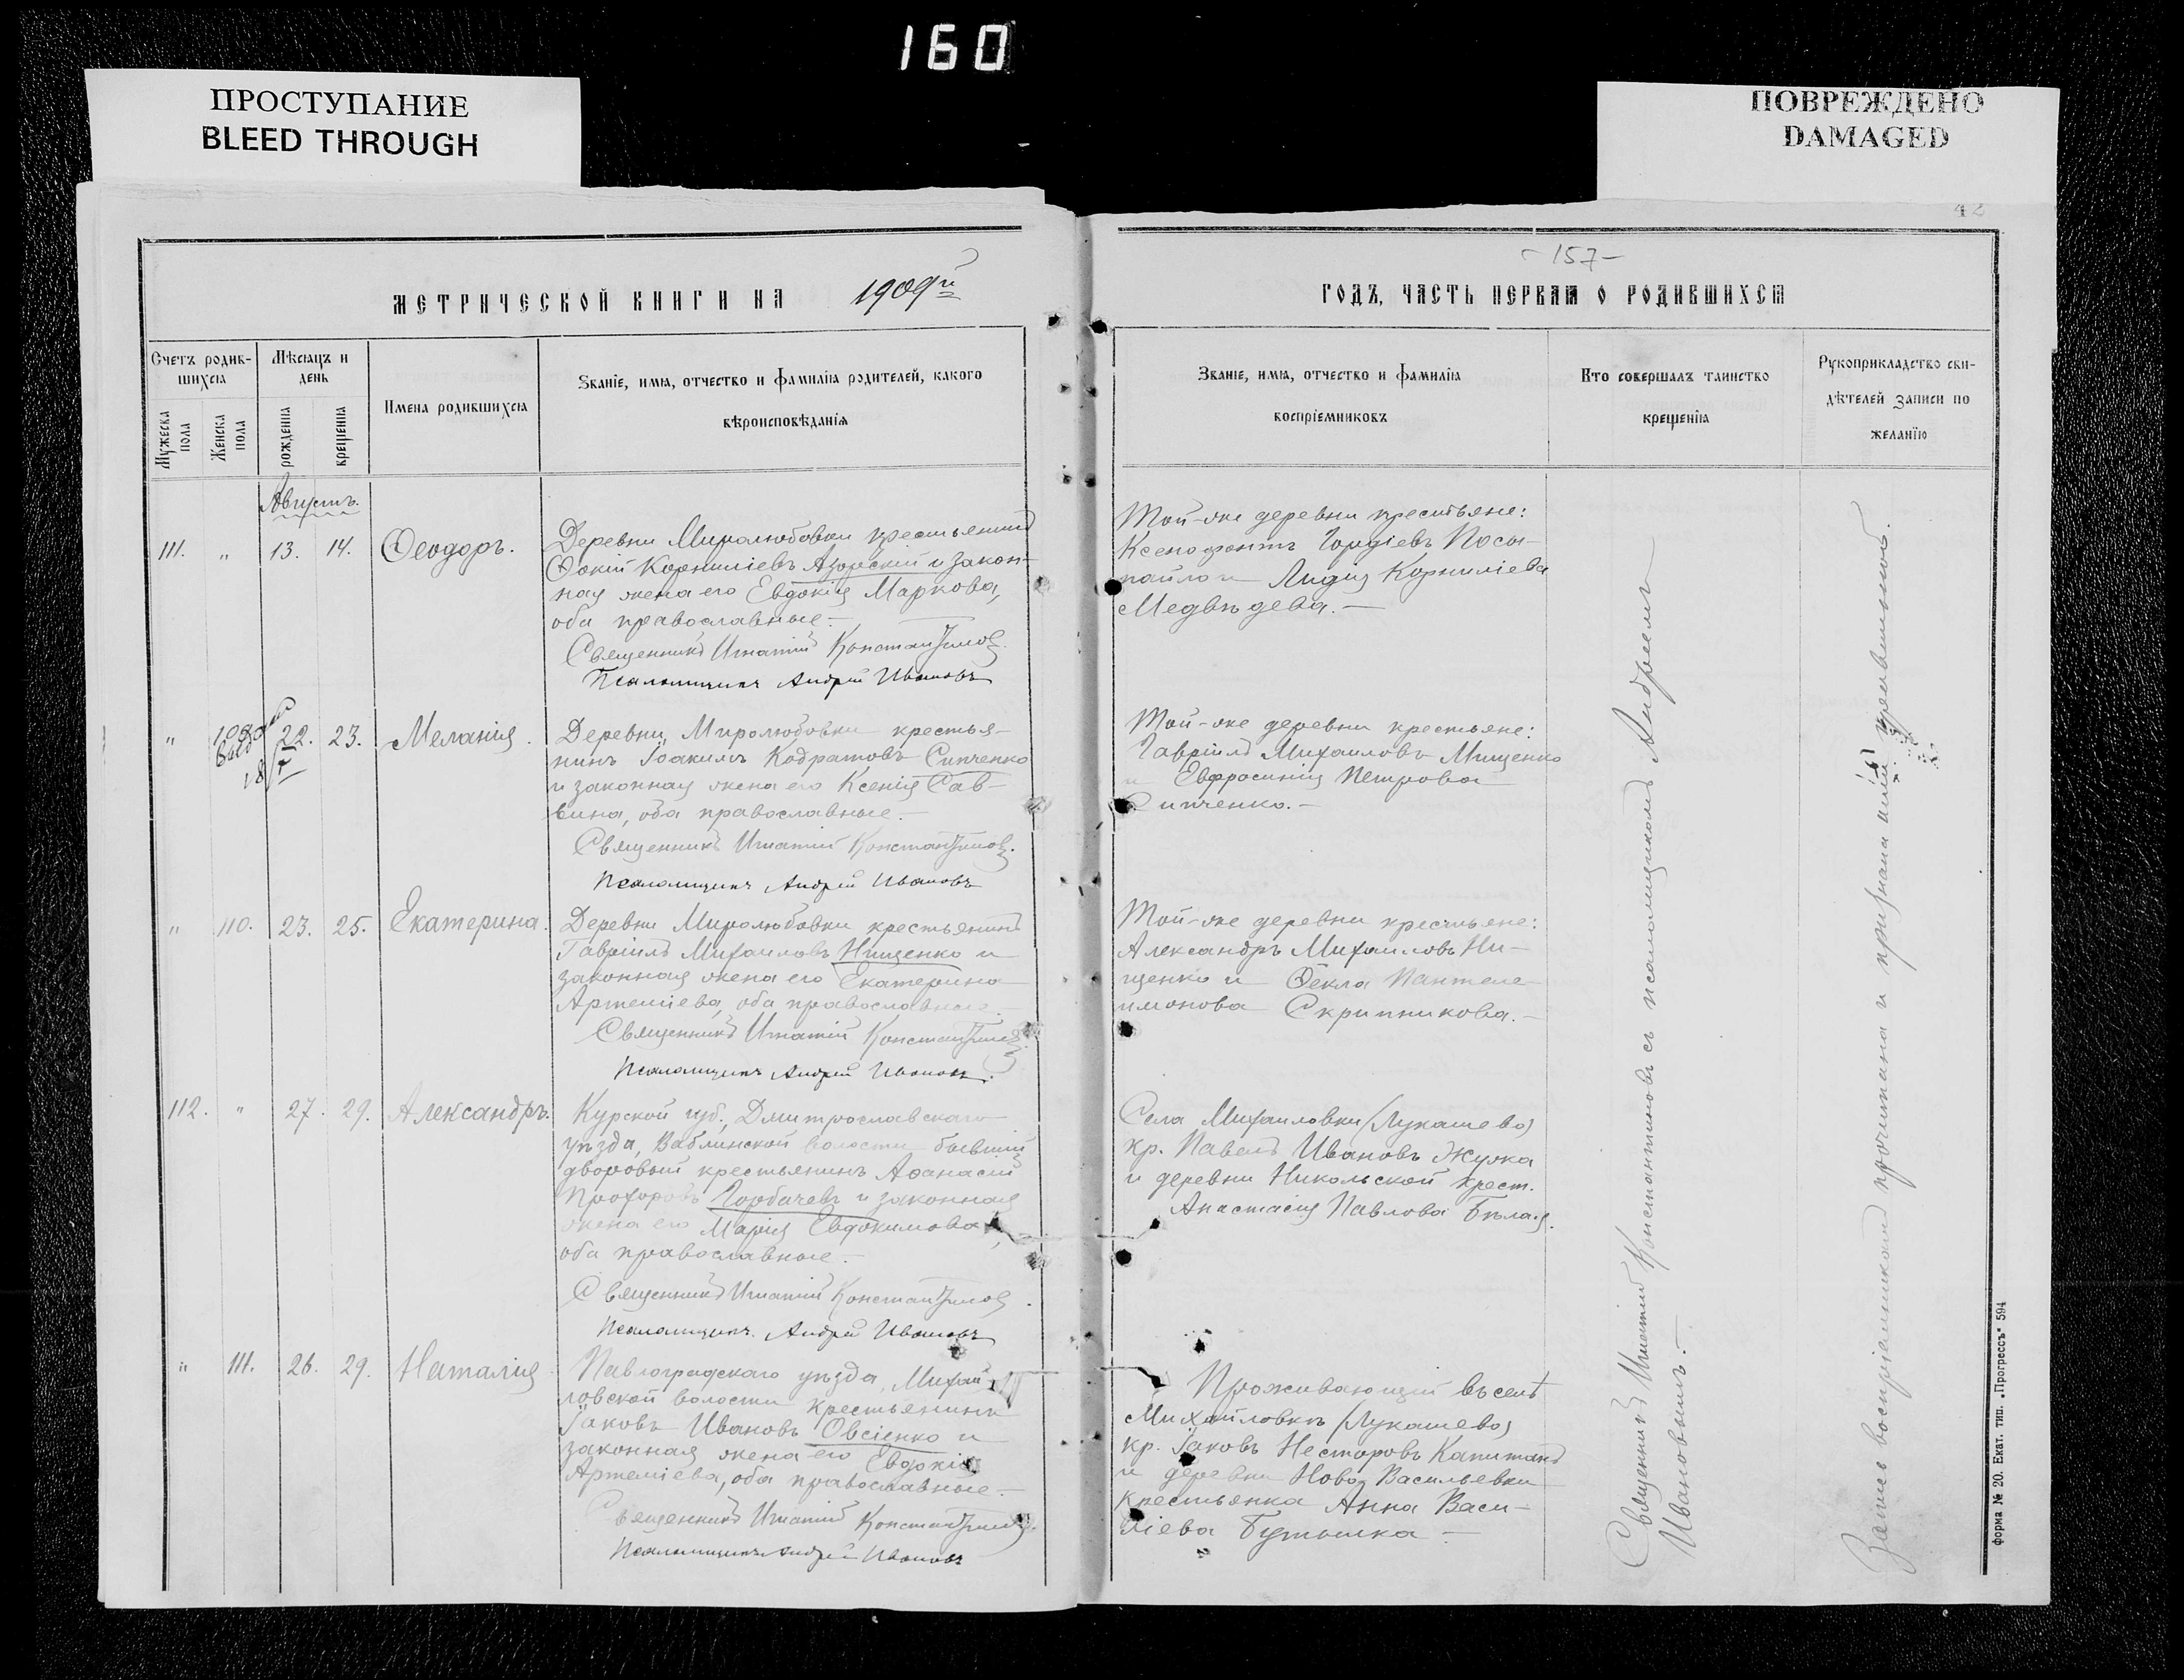 160
ПРОСТУПАНИЕ
BLEED THROUGH
ПОВРЕЖДЕНО
DAMAGED
42
МЕТРИЧЕСКОЙ КНИГИ НА 1909й
Счетъ родив-
шихся
Мѣсяцъ и
день
Имена родившихся
Званіе, имя, отчество и фамилія родителей, какого
вѣроисповѣданія
Мужеска пола
Женска пола
рожденія
крещенія
Августъ.
111. " 13. 14. Ѳеодоръ.
Деревни Миролюбовки крестьянинъ
Ѳокій Корниліевъ Азорскій и закон-
ная жена его Евдокія Маркова,
оба православные.—
Священникъ Игнатій Константиновъ.
Псаломщикъ Андрей Ивановъ
" 109 22. 23. Меланія.
Деревни Миролюбовки крестья-
нинъ Іоакимъ Кодратовъ Сипченко
и законная жена его Ксенія Сав-
вина, оба православные.—
Священникъ Игнатій Константиновъ.
Псаломщикъ Андрей Ивановъ
" 110. 23. 25. Екатерина.
Деревни Миролюбовки крестьянинъ
Гавріилъ Михаиловъ Нищенко и
законная жена его Екатерина
Артеміева, оба православные.
Священникъ Игнатій Константиновъ.
Псаломщикъ Андрей Ивановъ.
112. " 27. 29. Александръ.
Курской губ., Дмитрославскаго
уѣзда, Ваблинской волости бывшій
дворовый крестьянинъ Аѳанасій
Прохоровъ Горбачевъ и законная
жена его Марія Евдокимова,
оба православные.—
Священникъ Игнатій Константиновъ.
Псаломщикъ. Андрей Ивановъ
" 111. 26. 29. Наталія
Павлоградскаго уѣзда, Михай-
ловской волости крестьянинъ
Іаковъ Ивановъ Овсіенко и
законная жена его Евдокія
Артеміева, оба православные.—
Священникъ Игнатій Константиновъ.
Псаломщикъ Андрей Ивановъ
- 157 -
ГОДЪ, ЧАСТЬ ПЕРВАЯ О РОДИВШИХСЯ
Званіе, имя, отчество и фамилія
воспріемниковъ
Кто совершалъ таинство
крещенія
Рукоприкладство сви-
дѣтелей записи по
желанію
Той-же деревни крестьяне:
Ксенофонтъ Гордіевъ Посы-
пайло и Лидія Корниліева
Медвѣдева.—
Той-же деревни крестьяне:
Гавріилъ Михаиловъ Мищенко
и Евфросинія Петрова
Сипченко.—
Той-же деревни крестьяне:
Александръ Михаиловъ Ни-
щенко и Ѳекла Пантеле-
имонова Скрипникова.—
Села Михаиловки (Лукашево)
кр. Павелъ Ивановъ Жужа
и деревни Никольской крест.
Анастасія Павлова Бѣлая.
Проживающій въ селѣ
Михайловкѣ (Лукашево)
кр. Іаковъ Несторовъ Капитанъ
и деревни Ново Васильевки
крестьянка Анна Васи-
ліева Бутылка —
Священникъ Игнатій Константиновъ съ псаломщикомъ Андреемъ
Ивановымъ.—
Запись воспріемникомъ прочитана и признана имъ правильной.
форма № 20. Екат. тип. „Прогрессъ" 594